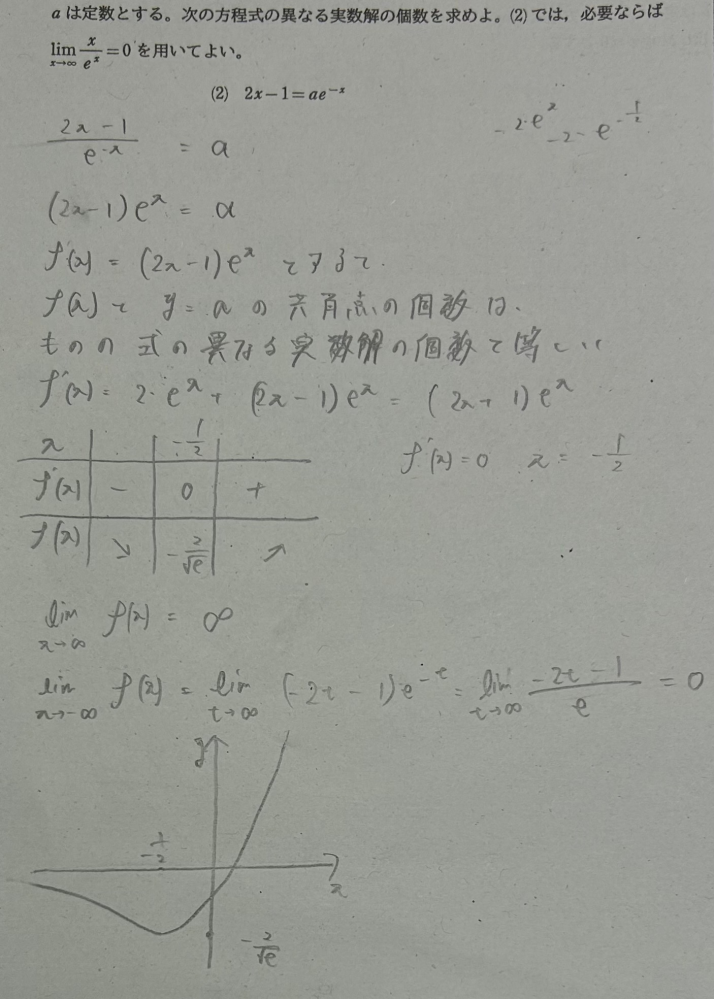 aは定数とする。次の方程式の異なる実数解の個数を求めよ。(2)では，必要ならば
lim x→∞ x/e^x=0 を用いてよい。
(2) 2x-1=ae^-x
-2·e^x -2· e^-1/2
2x-1/e^-x = a
(2x-1)e^x = a
f(x) = (2x-1)e^x とすると.
f(x)と y=a の共有点の個数は、
もとの式の異なる実数解の個数と等しい
f'(x)= 2·e^x + (2x-1)e^x = (2x+1)e^x
f'(x)=0 x=-1/2
x -1/2
f'(x) - 0 +
f(x) ↘ -2/√e ↗
lim x→∞ f(x) = ∞
lim x→-∞ f(x) = lim t→∞ (-2t-1)e^-t = lim t→∞ -2t-1/e = 0
y
-1/2
x
-2/√e